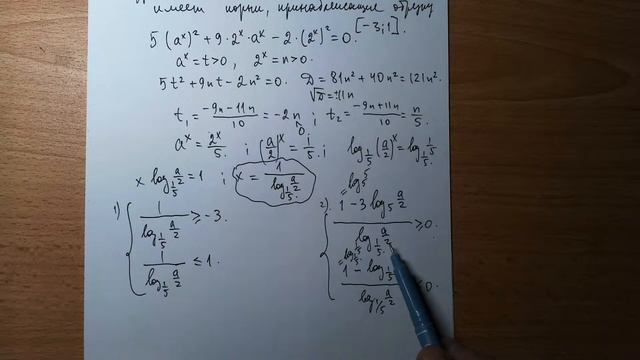 имеет корни, принадлежащие отрезку
[-3;1].
5(aˣ)² + 9·2ˣ·aˣ - 2·(2ˣ)² = 0.
aˣ = t > 0, 2ˣ = n > 0.
5t² + 9nt - 2n² = 0. D = 81n² + 40n² = 121n².
√D = ±11n
t₁ = (-9n - 11n)/10 = -2n ; t₂ = (-9n + 11n)/10 = n/5
aˣ = 2ˣ/5. ; (a/2)ˣ = 1/5. ; log_{1/5}(a/2)ˣ = log_{1/5} 1/5
x log_{1/5} a/2 = 1 ; x = 1/(log_{1/5} a/2)
1) { 1/(log_{1/5} a/2) ≥ -3.
1/(log_{1/5} a/2) ≤ 1.
2) { (1 - 3 log₅ a/2)/(log_{1/5} a/2) ≥ 0.